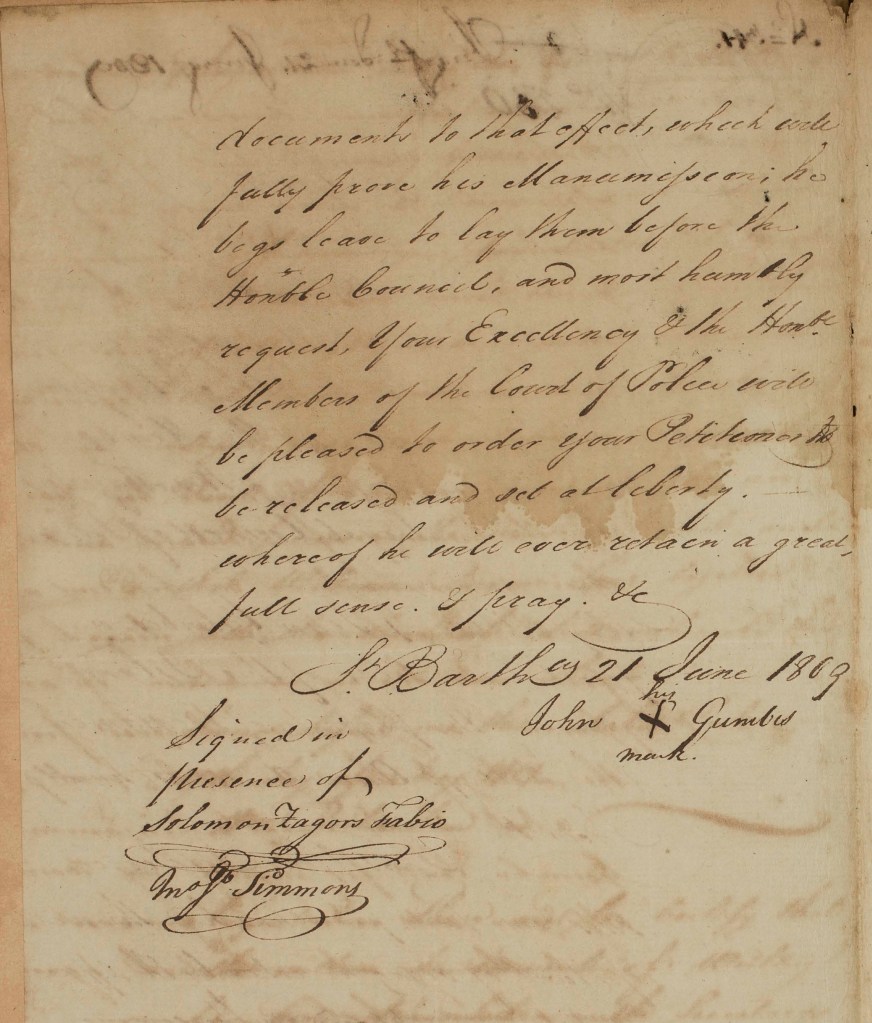 documents to that effect, which will
fully prove his Manumission; he
begs leave to lay them before the
Hon'ble Council, and most humbly
request, Your Excellency & the Honble.
Members of the Court of Police will
be pleased to order your Petitioner to
be released and set at leberty.
whereof he will ever retain a great,
full sense. & pray. &c
St. Barthws 21 June 1809
his
John X Gumbs
mark.
Signed in
presence of
Solomon Zagors Fabio
Simmons